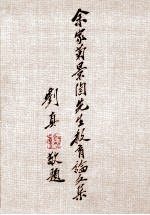 余家菊景陶先生教育論文集
劉真敬題